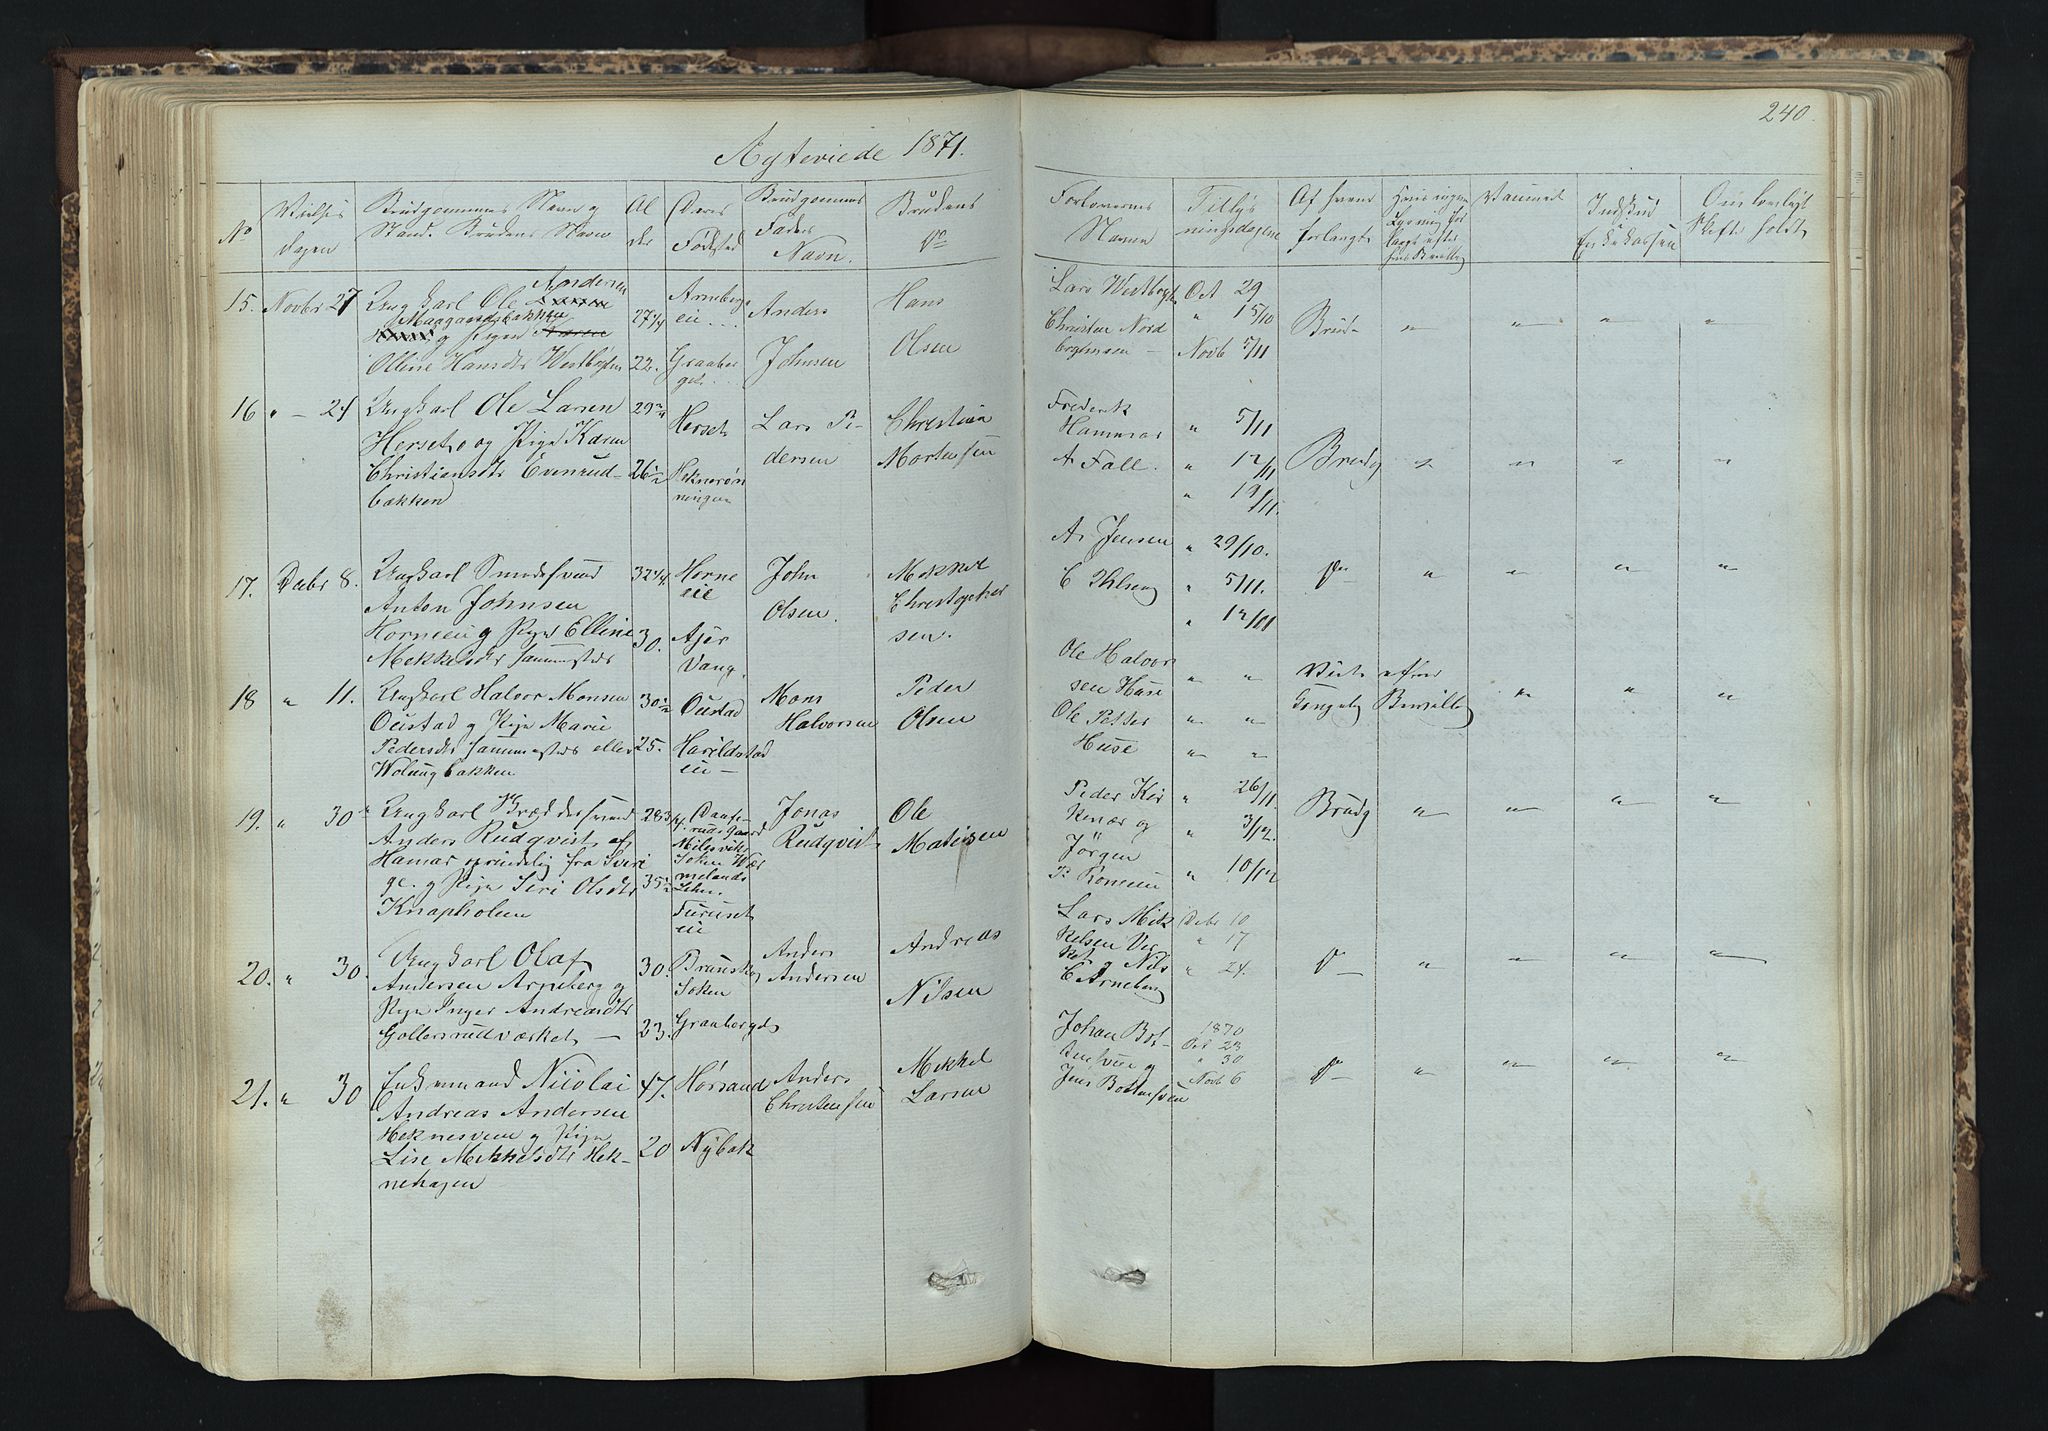 240.
Ægteviede 1871.
No
Vielses
dagen
Brudgommens Navn og
Stand. Brudens Navn
Al
der
Deres
Fødested
Brudgommens
Faders
Navn.
Brudens
Do
Forlovernes
Navne
Tillys
ningsdagene
Af hvem
forlangt
Vaccineret
Indskud
Enkekassen
Om lovligt
Skifte holdt
15. Novbr 27 Ungkarl Ole Andersen
Maagaardsbakken
og Pigen
Olline Hansdtr Westbyhn
27 1/4
22.
Arneberg
eie
Graaber
get
Anders
Johnsen
Hans
Olsen
Lars Westbyhn
Christen Nord
Oct 29
" 15/10
Novb 5/11
Brud " " " "
16 " 24 Ungkarl Ole Larsen
Herset, og Pige Karen
Christiansdtr Evenrud
bakken
Herset
Heknerøn
ningen
Lars Pe
dersen
Christian
Mortensen
Frederik
Hammar
A Fall.
" 5/11
" 12/11
" 19/11.
Brudg " " " "
17. Decbr 8. Ungkarl Smedesvend
Anton Johnsen
Horneeie og Pige Elline
Mekkelsdtr sammesteds
30.
Horne
eie
Ajer
Vang.
John
Olsen.
Mekkel
Christopher
sen.
A. Jensen
" 29/10.
" 5/11.
" 12/11
Do " " " "
18 " 11. Ungkarl Halvor Monsen
Oustad og Pige Marie
Pedersdtr sammesteds eller
Wolungbakken
30 1/2
25.
Oustad
Harildstad
eie
Mons
Halvorsen
Peder
Olsen
Ole Halvor
sen Huse
Ole Petter
Huse
" "
" "
" "
Viet efter
Kongelig Bevilling " " "
19. " 30 Ungkarl Bræddersvend
Anders Rudqvist af
Hamar oprindelig fra Sveri
ge. og Pige Siri Olsdtr
Knapholen
rudsgaard
Milesviks
Soken Wær
melands
Lehn.
Furuset
eie
Jonas
Rudqvist
Ole
Matisen
Peder Kir
kenær og
Jörgen
P. Romeeie
" 26/11.
" 3/12.
" 10/12
Brudg " " " "
20. " 30. Ungkarl Olaf
Andersen Arneberg og
Pige Inger Andreasdtr
Gottersrudværket
30.
23.
Brunskog
Soken
Graaberget
Anders
Andersen
Andreas
Nilsen
Lars Mik
kelsen Vee
ket og Nils
C Arneberg
Decbr 10
" 17
" 24.
Do " " " "
21. " 30 Enkemand Nicolai
Andreas Andersen
Heknesveen og Pige
Lise Mekkelsdtr Hek-
nehagen
47.
20
Hørsand
Nybak
Anders
Christensen
Mekkel
Larsen
Johan Bot-
tensveen og
Jens Bottensveen
1870
Oct 23
" 30
Novb 6
Do " " " "